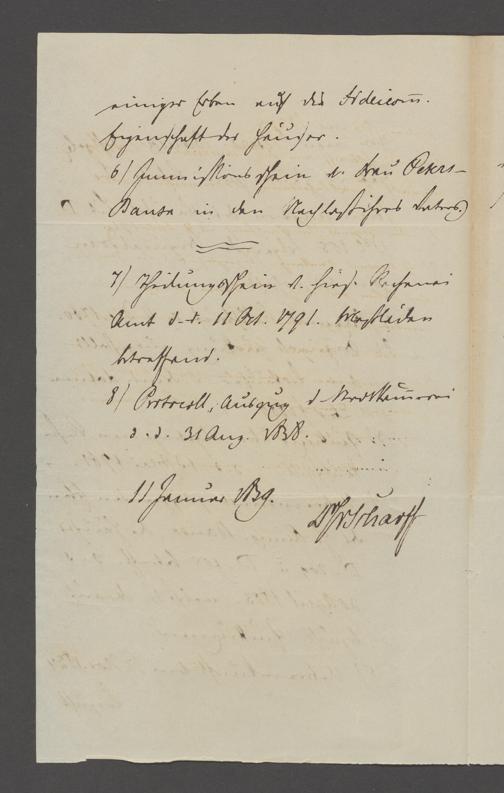 einiger Erben auf die Fideicom̅.
Eigenschaft der Häuser.
6) Immissionsschein d. Frau Peters-
Bansa in den Nachlaß ihres Vaters.
7) Theilungsschein d. hies. Rechenei
Amt d. d. 11 Oct. 1791.
betreffend.
8) Protocoll, Auszug d. Stadtkämmerei
d. d. 31 Aug. 1838.
11 Januar 1839.
Dr Scharff